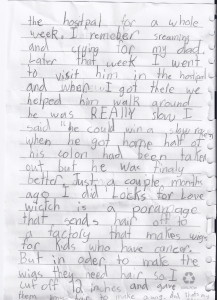 the hostpal for a whole
week. I remeber screaming
and crying for my dad.
Later that week I went
to visit him in the hostpal
and when I got there we
helped him walk around
he was REALLY slow I
said "he could win a slow race
when he got home half of
his colon had been taken
out but he was finaly
better. Just a couple months
ago I did Locks for Love
wictch is a
that sends hair off to
a factoly that makes wigs
for kids who have cancer.
But in oder to make the
wigs they need hair so I
cut off 12 inches and gave
them hair to make a wig. But that's